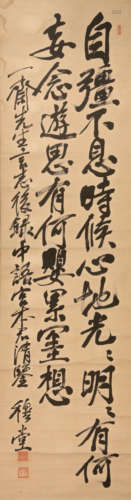 自彊不息時候心地光〻明〻有何
妄念遊思有何嬰累罣想
一齋先生言志後録中語 清鑒 穆堂